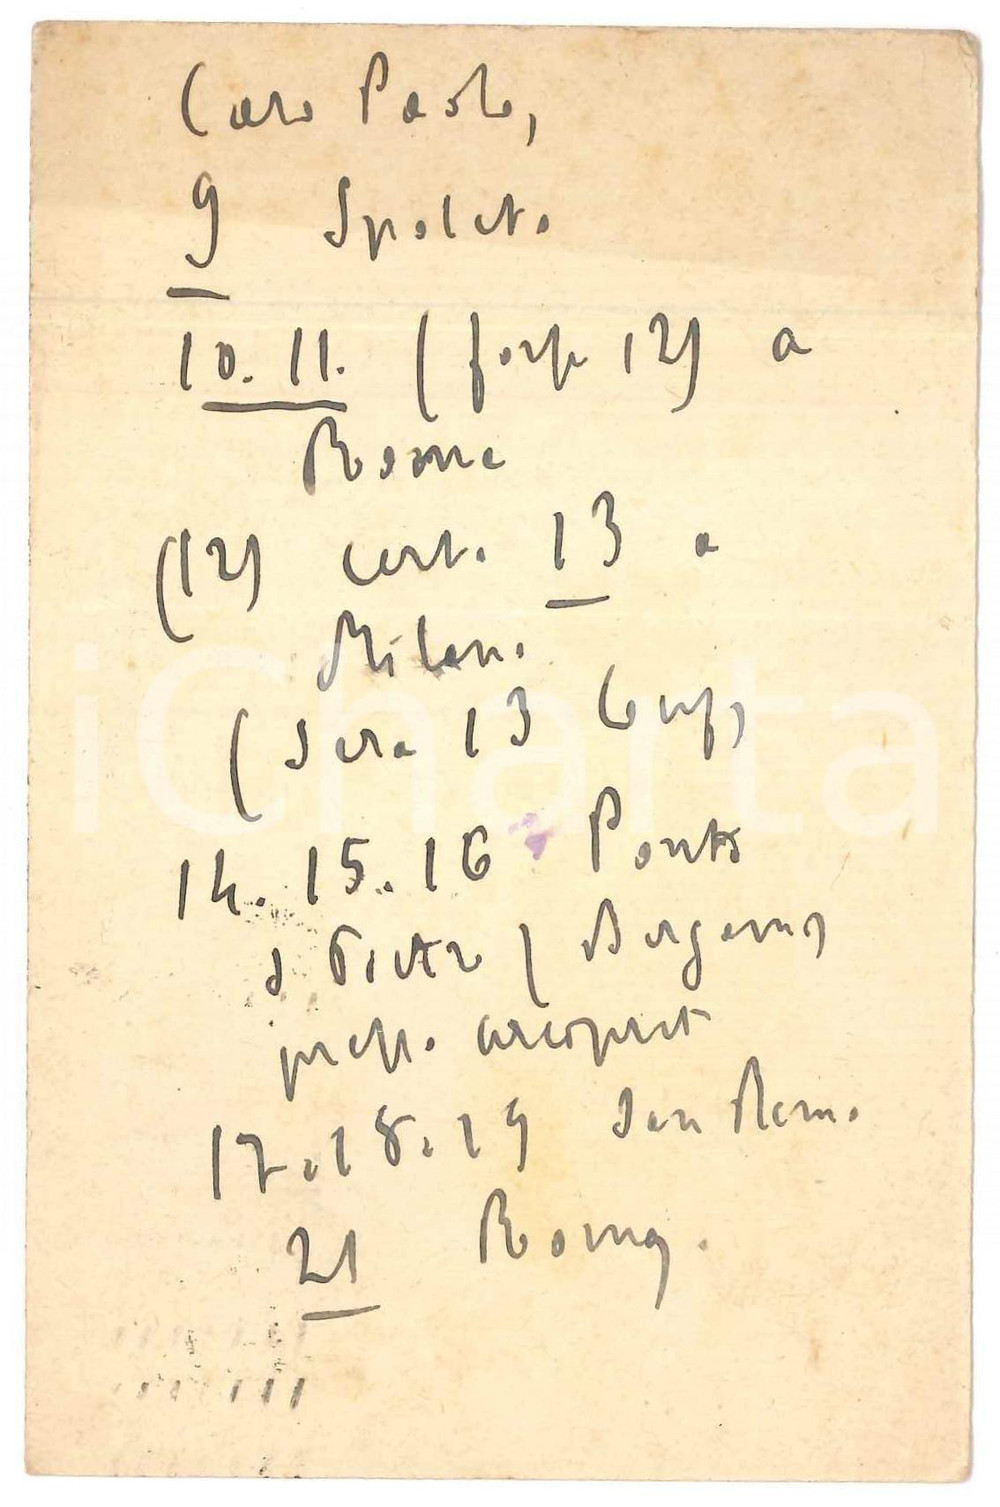 Caro Paolo,
9 Spoleto
10. 11. (forse 12) a
Roma
(12) certo 13 a
Milano
(Sera 13
14. 15. 16 Ponte
S Pietro (Bergamo)
presso aeroporto
17. 18. 19 San Remo
21 Roma.
iCharta